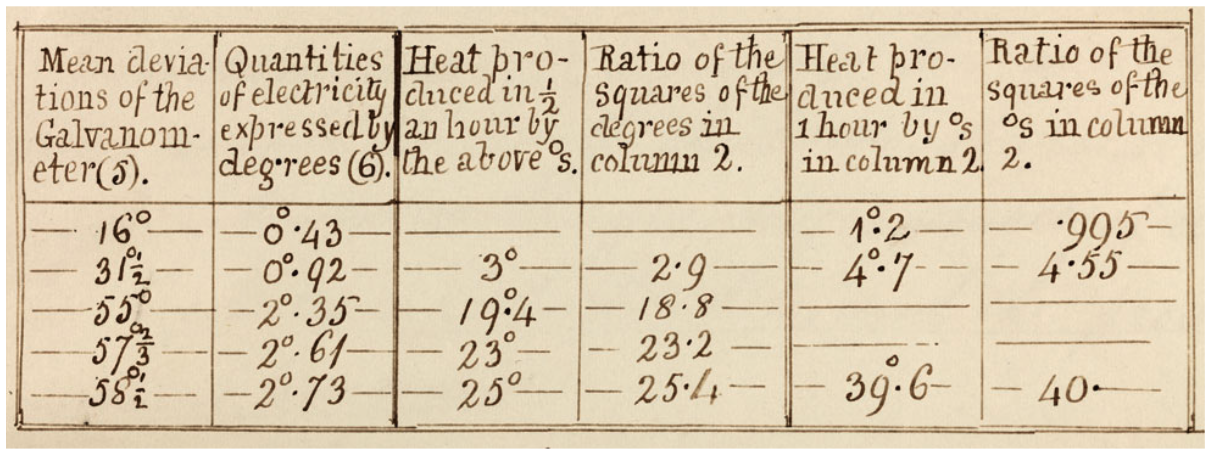 Mean devia- Quantities Heat pro- Ratio of the Heat pro- Ratio of the
tions of the of electricity duced in ½ squares of the duced in squares of the
Galvanom- expressed by an hour by degrees in 1 hour by °s °s in column
eter (5). degrees (6). the above °s. column 2. in column 2. 2.
16° 0°·43 — — 1°·2 ·995
31°½ 0°·92 3° 2·9 4°·7 4·55
55° 2°·35 19°·4 18·8 — —
57°⅔ 2°·61 23° 23·2 — —
58°½ 2°·73 25° 25·4 39°·6 40·